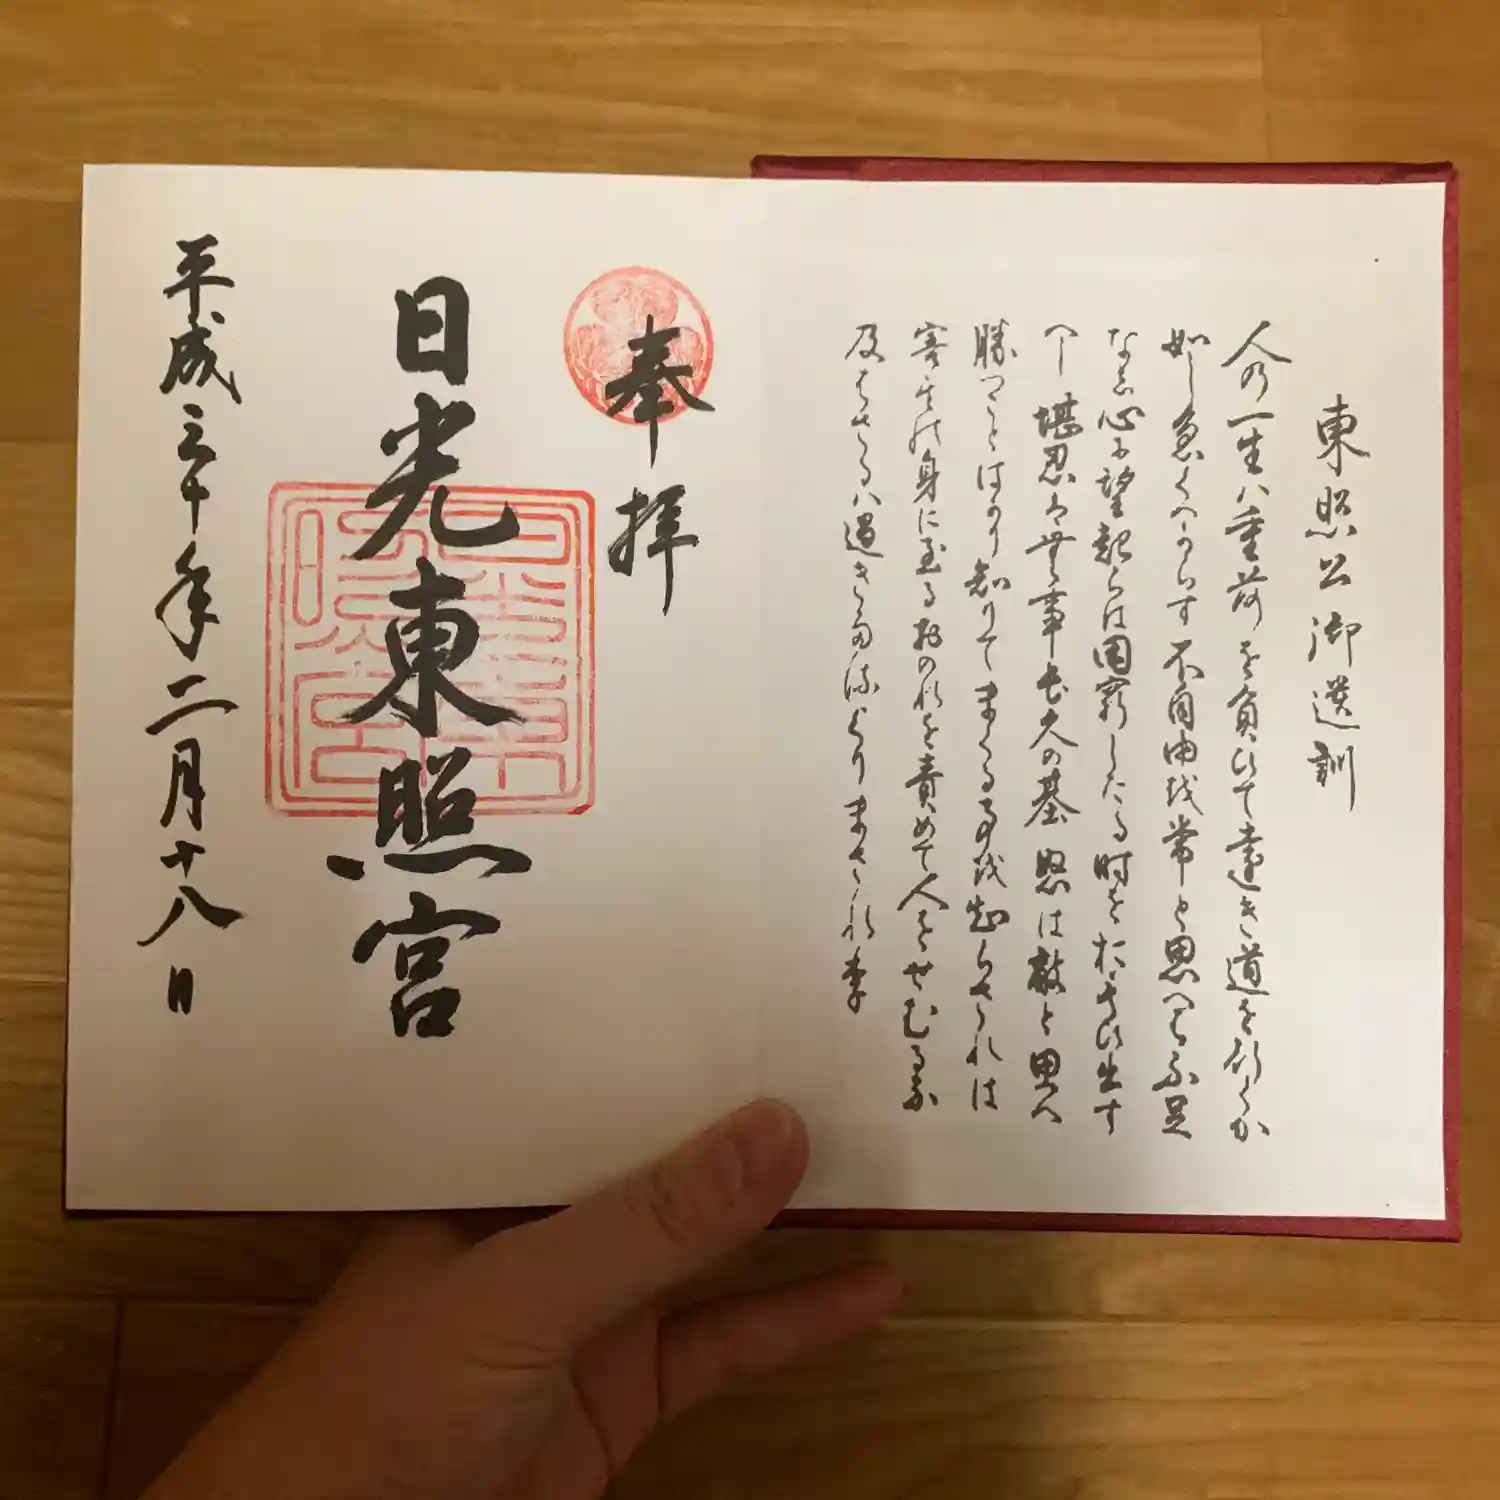 東照公御遺訓
人の一生ハ重荷を負ひて遠き道を行くか
如し急くへからす不自由を常と思へハ不足
なし心に望起らは困窮したる時を思ひ出す
へし堪忍は無事長久の基怒は敵と思へ
勝つことはかり知りてまくる事を知らされは
害其の身に至る於のれを責めて人をせむるな
及はさるハ過きたるよりまされり
奉拝
日光東照宮
平成三十年二月十八日